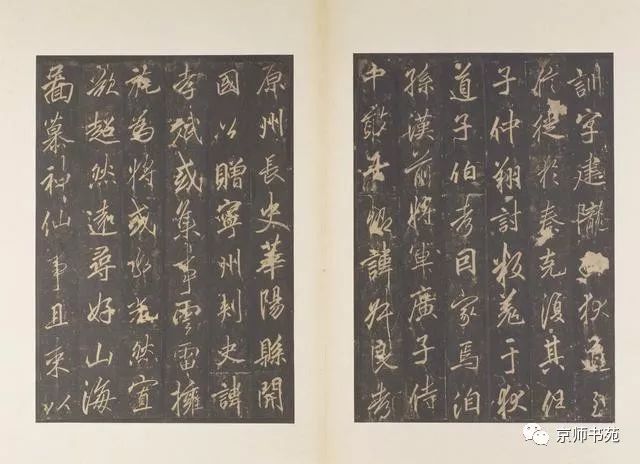 訓字建隴狄道
於從於秦克復其任
子仲翔討叛羌于狄
道子伯考因家焉洎
孫漢前將軍廣子侍
中諱弈良考
原州長史華陽縣開
國公贈寧州刺史諱
孝斌或集事雲雷擁
旄為將或然宣
欲超然遠尋好山海
圖慕神仙事且束以
京师书苑